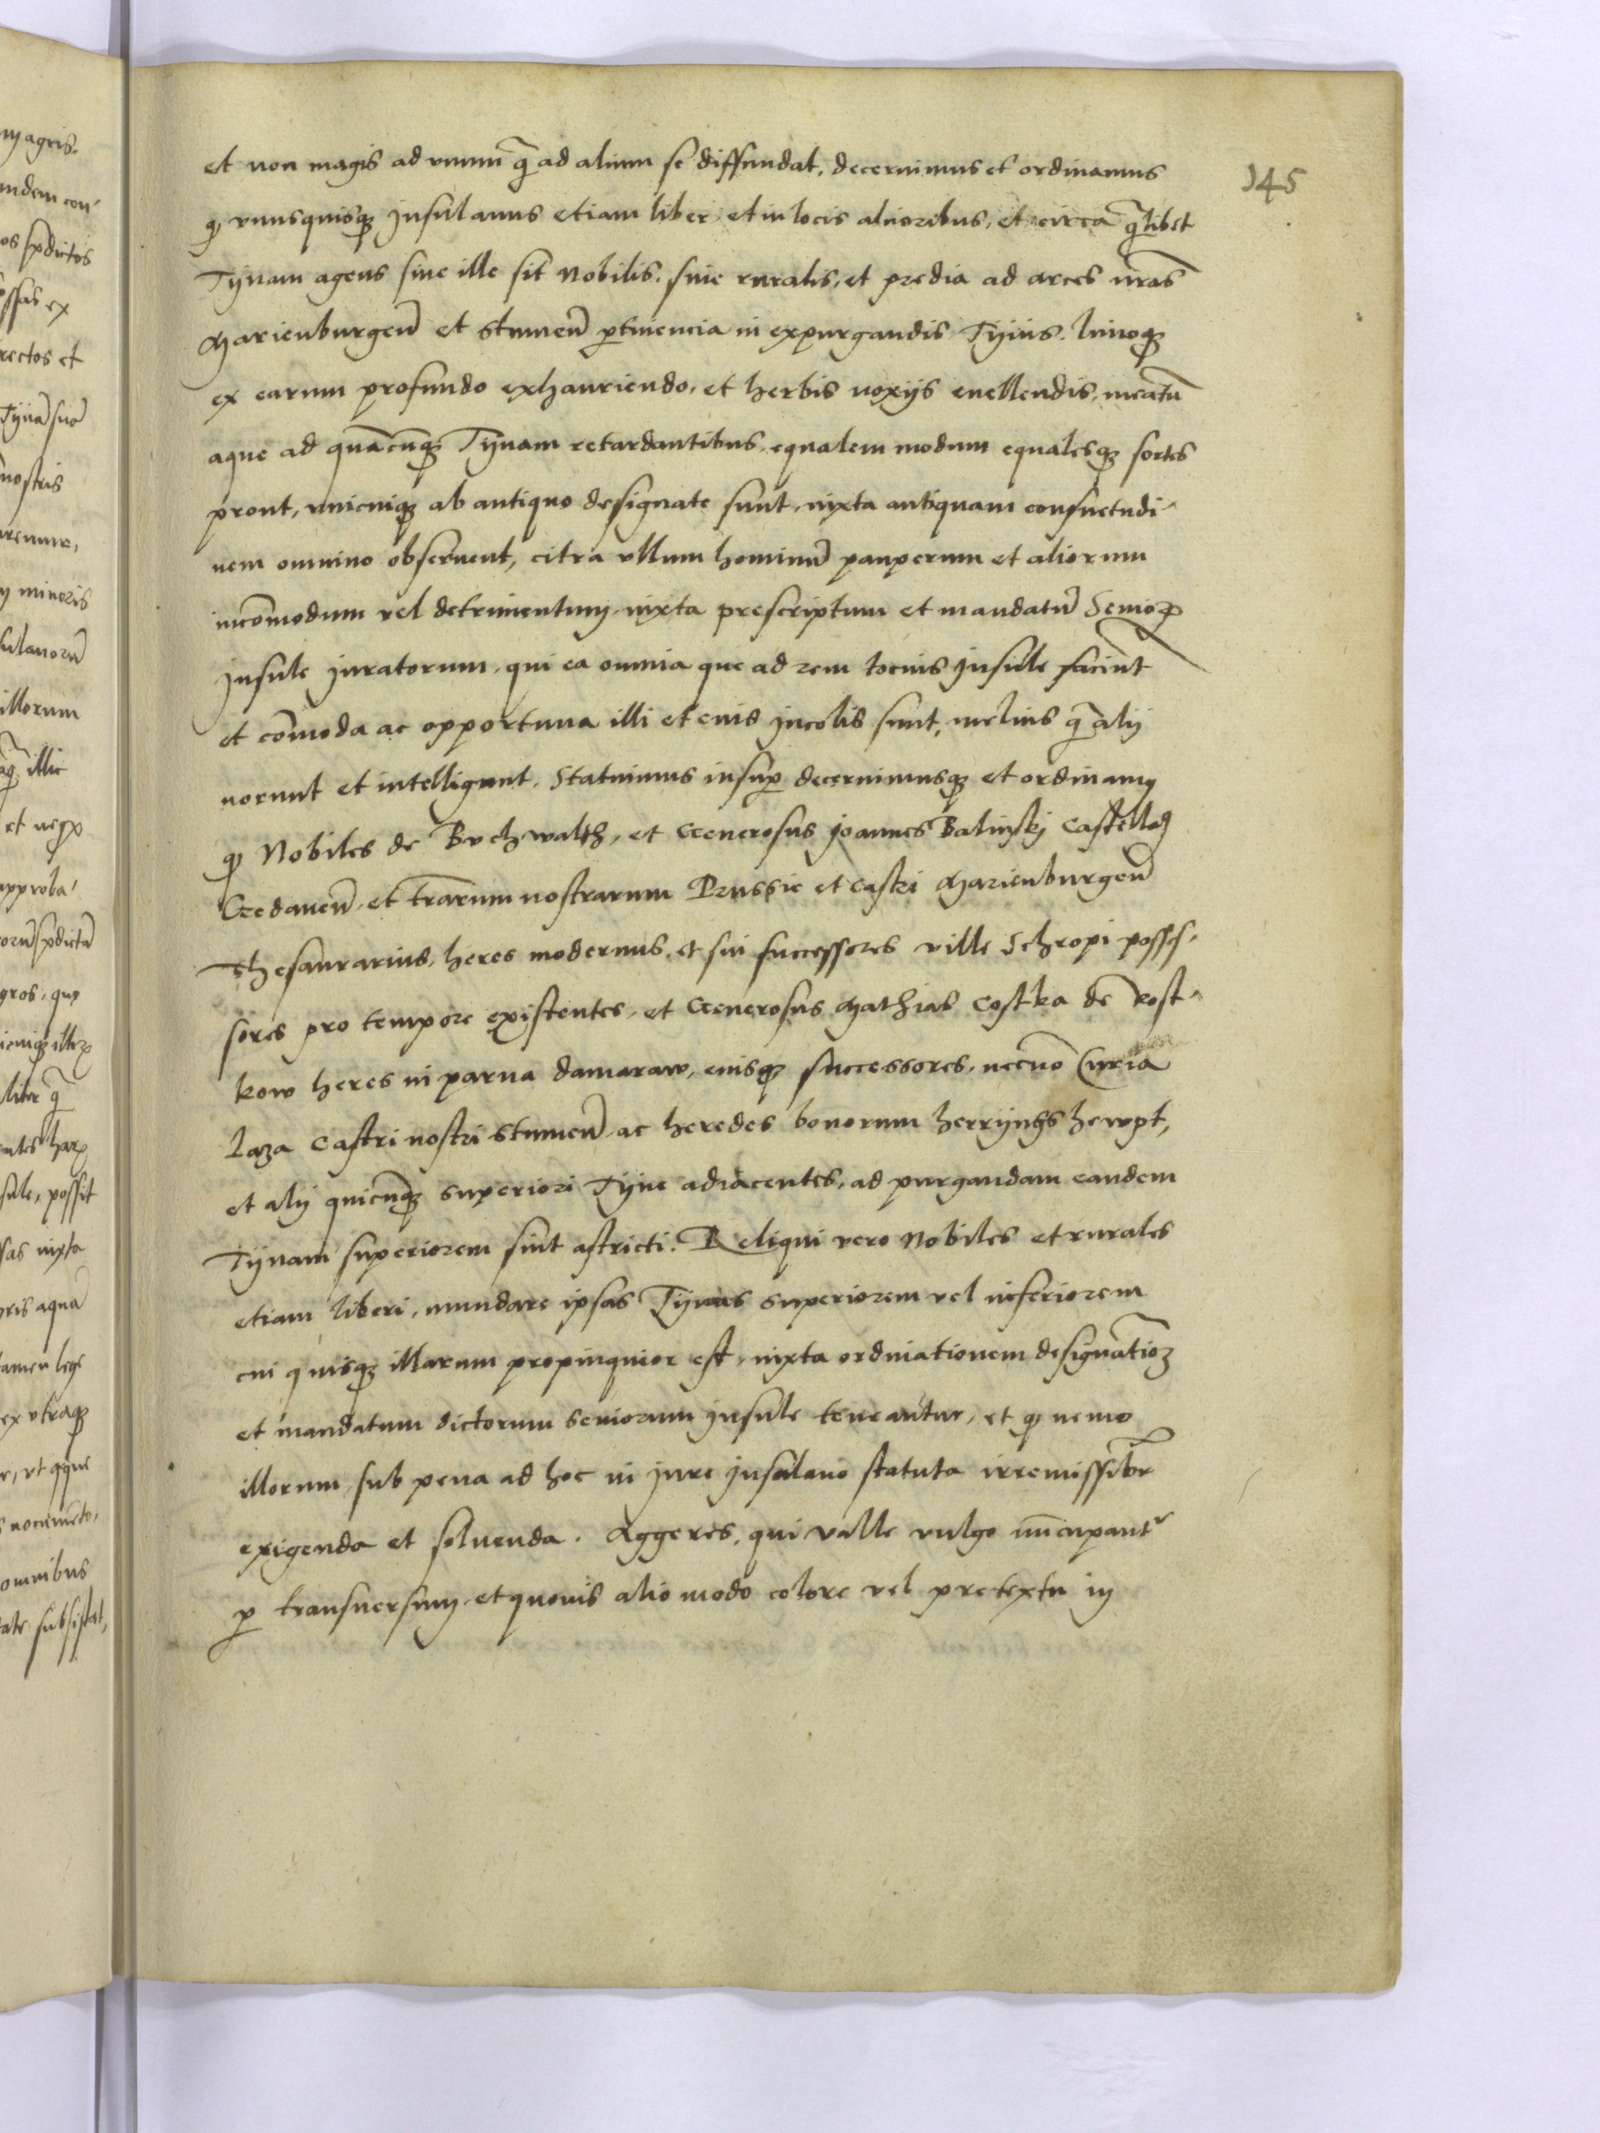 145
et non magis ad vnum q̄ ad alium se diffundat, decernimus et ordinamus
qꝫ vnusquisqꝫ Insulanus etiam liber et in locis altioribus, et circa q̄libet
Tynam agens siue ille sit Nobilis, siue ruralis, et predia ad arces nr̄as
Marienburgeñ et Stumeñ ꝑtinencia in expurgandis Tynis, limoqꝫ
ex earum profundo exhauriendo, et herbis noxijs euellendis, meatū
aque ad quācūqꝫ Tynam retardantibus, equalem modum equalesqꝫ sortes
prout, vnicuiqꝫ ab antiquo designate sunt, iuxta antiquam consuetudi-
nem omnino obseruent, citra vllum hominū pauperum et aliorum
incōmodum vel detrimentum, iuxta prescriptum et mandatū Senioꝝ
Insule Iuratorum, qui ea omnia que ad rem tocius Insule faciūt
et cōmoda ac opportuna illi et eius Incolis sunt, melius q̄ alij
norunt et intelligunt. Statuimus insuꝑ decernimusqꝫ et ordinamꝰ
qꝫ Nobiles de Buchwalth, et Generosus Joannes Balinskj Castellañ
Gedaneñ, et tr̄arum nostrarum Prussie et Castri Marienburgeñ
Thesaurarius, heres modernus, et sui successores ville Schropi posses-
sores pro tempore existentes, et Generosus Mathias Costka de Kost-
kow heres in parua damaraw, eiusqꝫ successores, necnō Curia
Laza Castri nostri Stumeñ, ac heredes bonorum herryngs hewpt,
et alij quicūqꝫ superiori Tyne adiacentes, ad purgandam eandem
Tynam superiorem sint astricti. Reliqui vero Nobiles et rurales
etiam liberi, mundare ipsas Tynas superiorem vel inferiorem
cui quisqꝫ illarum propinquior est, iuxta ordinationem designatioꝫ
et mandatum dictorum seniorum Insule teneantur, et qꝫ nemo
illorum, sub pena ad hoc in Jure Insulano statuta irremissibr̄
exigenda et soluenda. Aggeres, qui valle vulgo nūcupantʳ
ꝑ transuersum, et quouis alio modo colore vel pretextu in